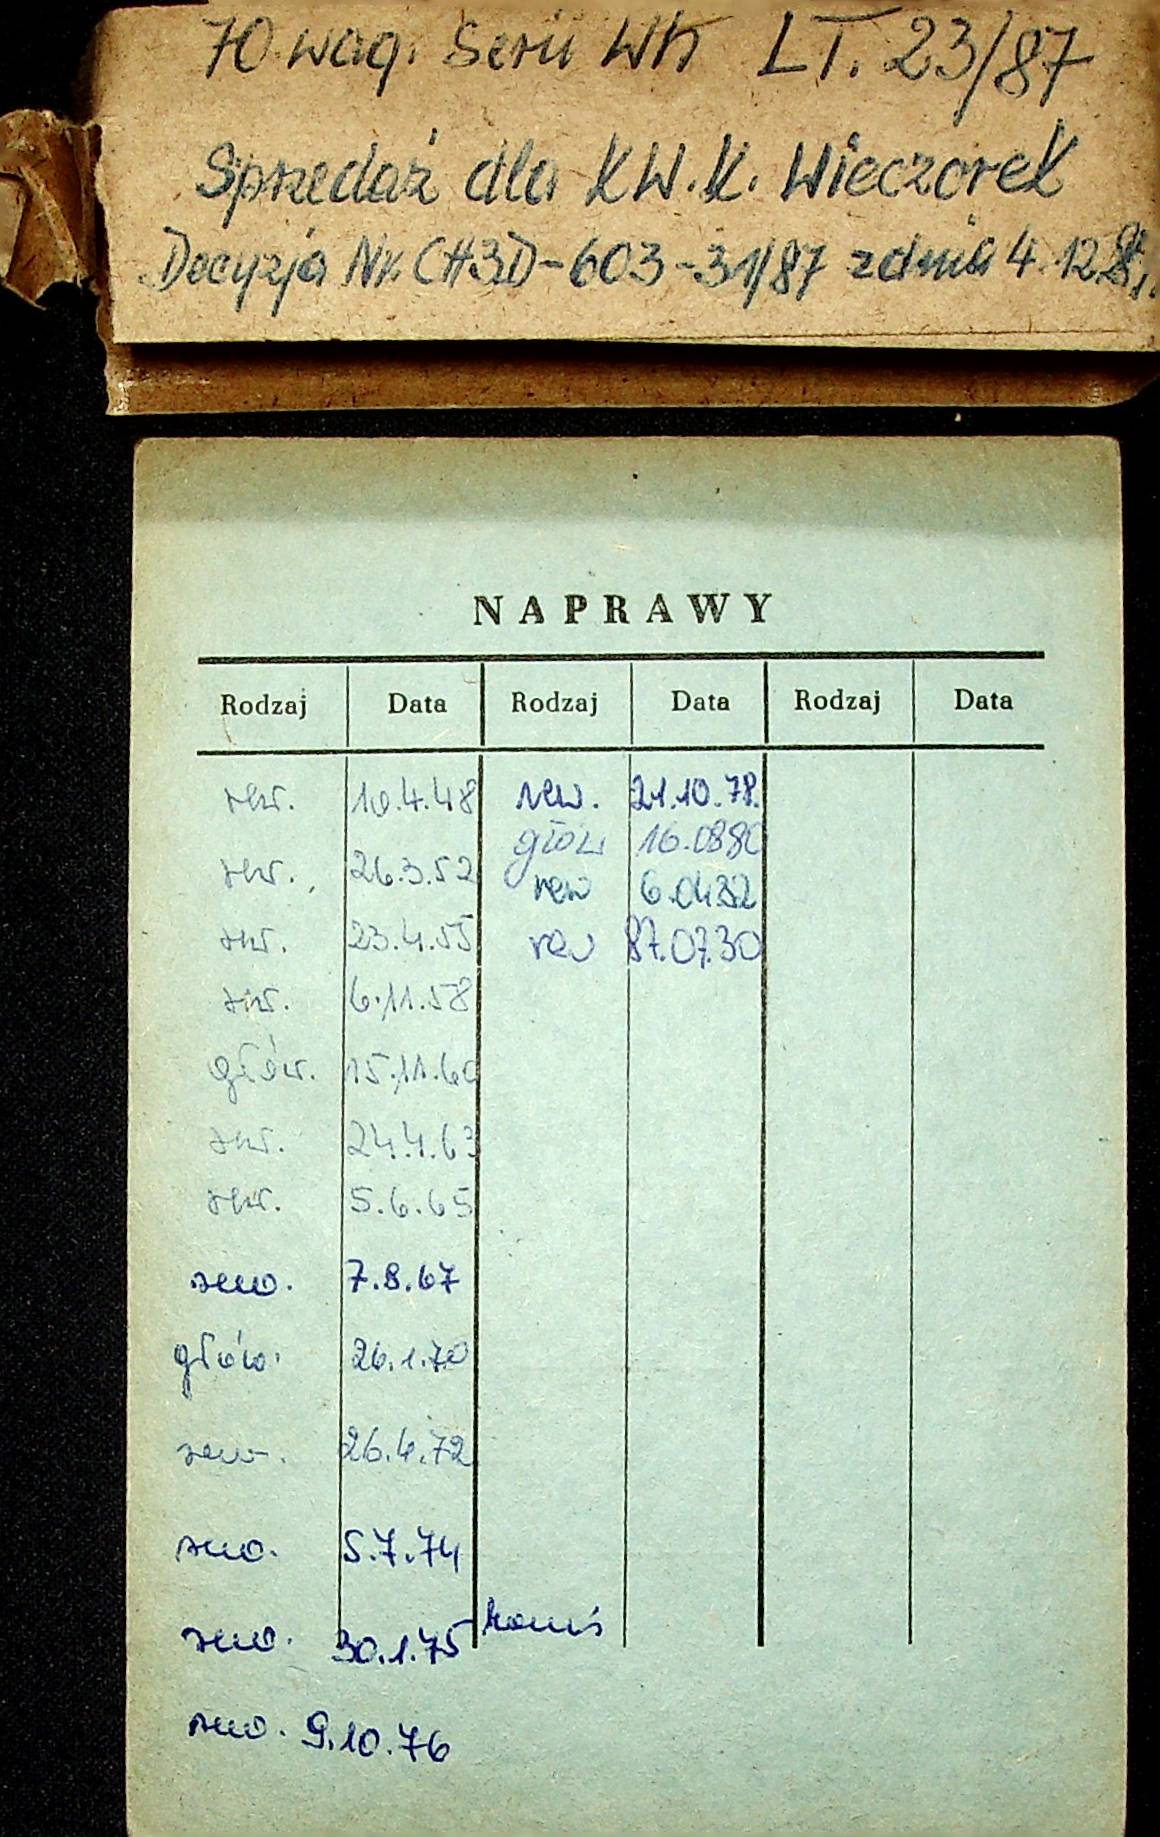 70 wag. Serii Wh LT. 23/87
Sprzedaż dla KW.K. Wieczorek
Decyzja Nr. CHZD-603-31/87 z dnia 4.12.
NAPRAWY
Rodzaj Data Rodzaj Data Rodzaj Data
rew. 10.4.48 rew. 21.10.78.
głów 16.0880
rew. 26.3.52 rew 6.0482
rew. 23.4.55 rew 87.07.30
rew. 6.11.58
głów. 15.11.60
rew. 24.4.63
rew. 5.6.65
rew. 7.8.67
głów. 26.1.70
rew. 26.4.72
rew. 5.7.74
rew. 30.1.75
rew. 9.10.76